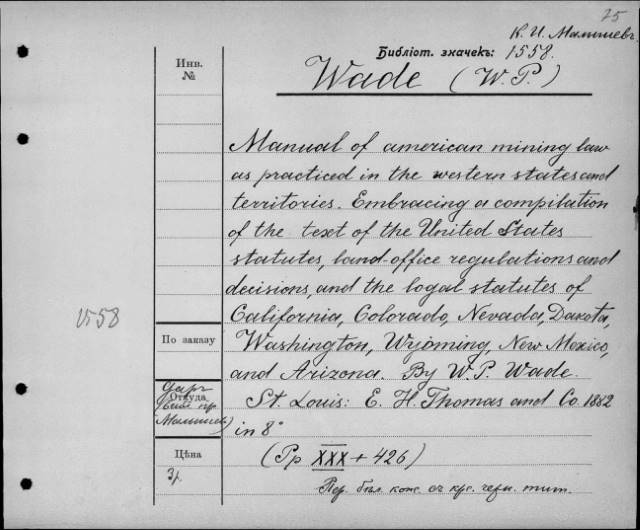 25
К. И. Малышевъ
Библіот. значекъ: 1558.
Инв.
№
Wade (W. P.)
Manual of american mining law
as practiced in the western states and
territories. Embracing a compilation
of the text of the United States
statutes, land-office regulations and
decisions, and the logal statutes of
California, Colorado, Nevada, Dakota,
Washington, Wyoming, New Mexico,
and Arizona. By W. P. Wade.
St. Louis: E. H. Thomas and Co. 1882
in 8°
(Pp XXX + 426)
Пер. бѣл. кож. съ кр. черн. тит.
1558
По заказу
Откуда
даръ
Малышева)
Цѣна
3р.